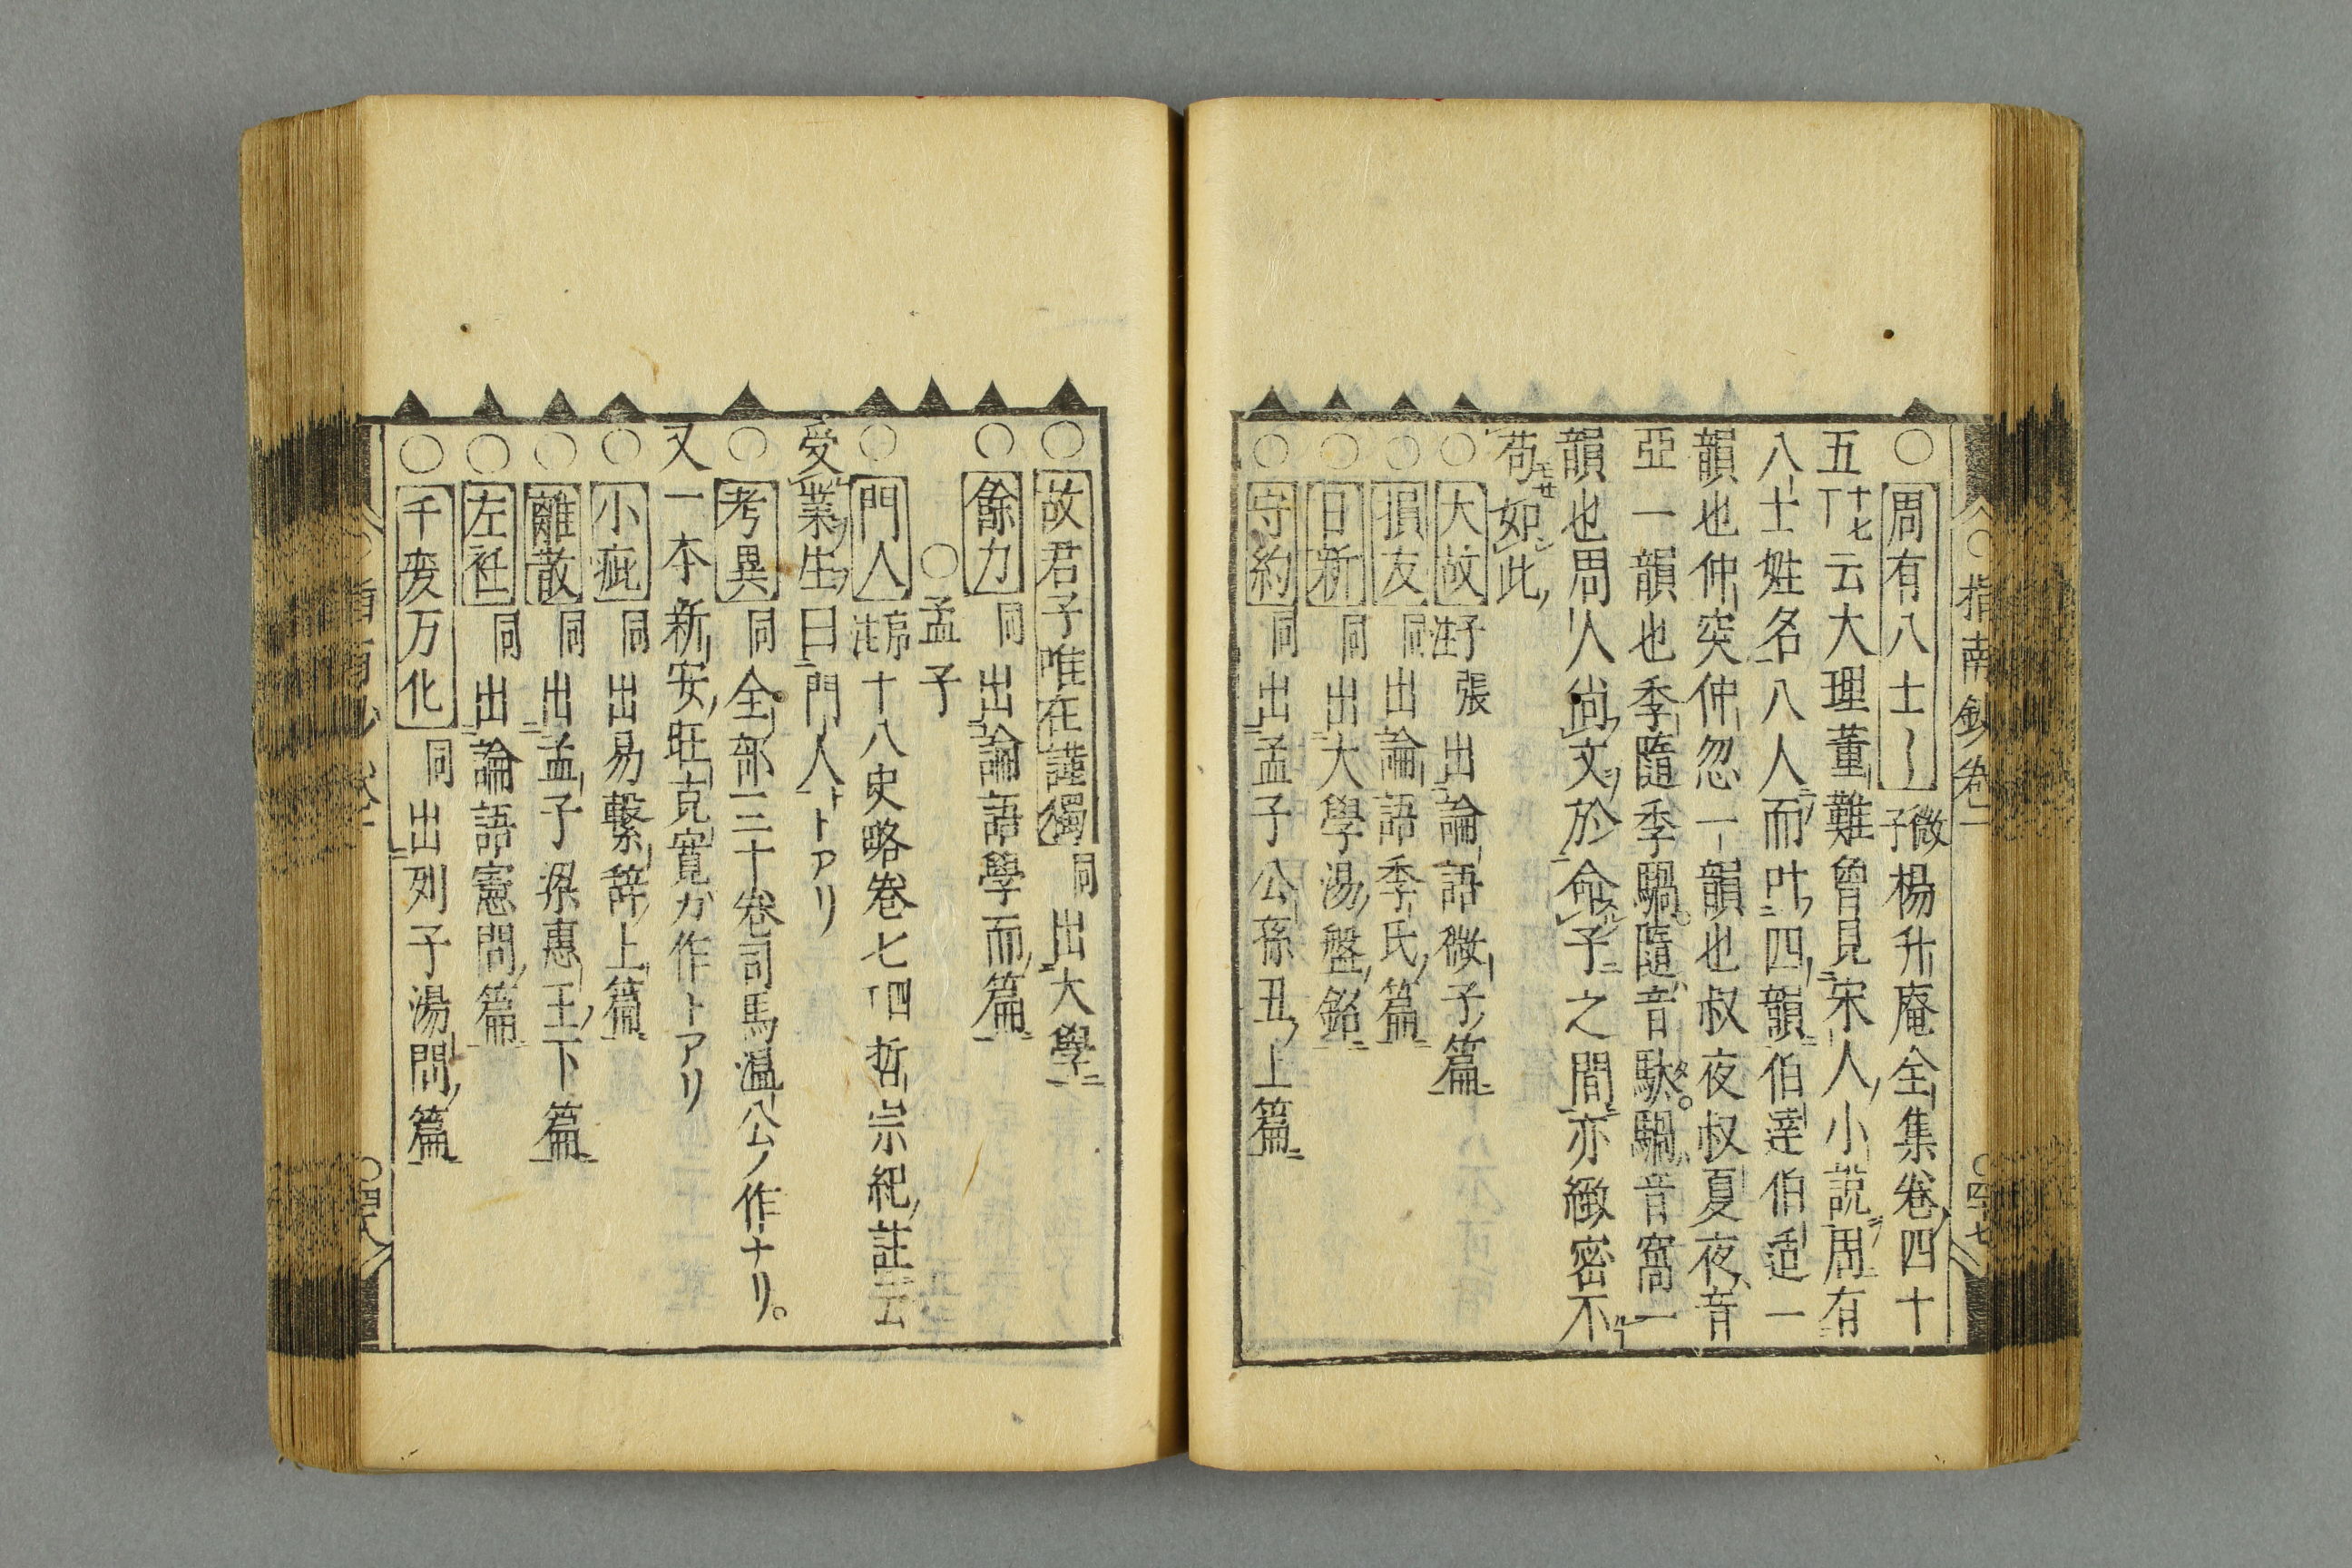 ○指南鈔卷一
○四十七
○周有八士〱微子楊升庵全集卷四十
五十七丁云大理董難曾見宋人小説周有
八士姓名八人而叶四韻伯達伯适一
韻也仲突仲忽一韻也叔夜叔夏夜音
亞一韻也季隨季騧隨音馱騧音窩一
韻也周人尚文於命子之間亦緻密不
苟如此
○大故子張注出論語微子篇
○損友同出論語季氏篇
○日新同出大學湯盤銘
○守約同出孟子公孫丑上篇
○故君子唯在謹獨同出大學
○餘力同出論語學而篇
○孟子
○門人序註十八史略卷七哲宗紀註云
受業生曰門人トアリ
○考異同全部三十卷司馬温公ノ作ナリ
又一本新安旺克寛ガ作トアリ
○小疵同出易繋辞上篇
○離散同出孟子梁惠王下篇
○左袵同出論語憲問篇
○千変万化同出列子湯問篇